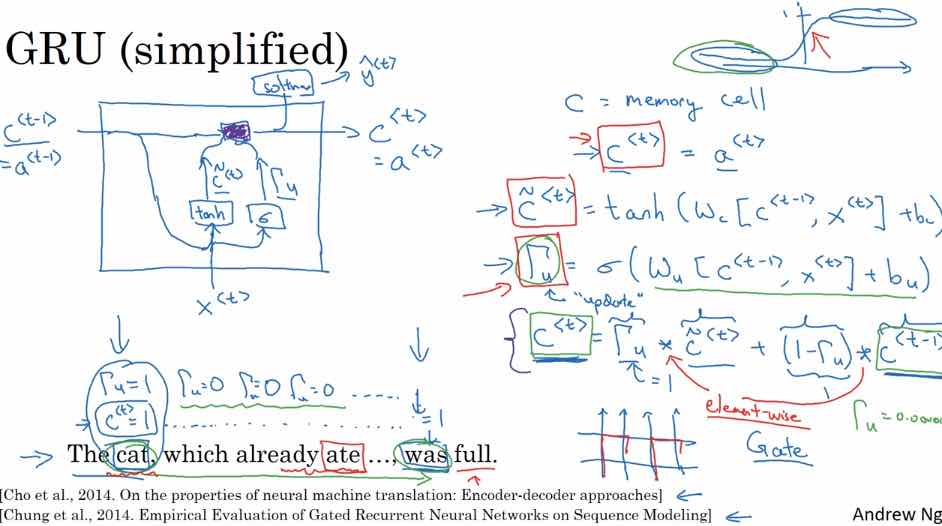 GRU (simplified)
softmax → ŷ^<t>
c^<t-1>
= a^(t-1)
c^<t>
= a^<t>
c̃^(t)
Γu
tanh
σ
x^<t>
1
C = memory cell
→ c^<t> = a^<t>
→ c̃^<t> = tanh (Wc [c^<t-1>, x^<t>] + bc)
→ Γu = σ (Wu [c^<t-1>, x^<t>] + bu)
"update"
c^<t> = Γu * c̃^<t> + (1-Γu) * c^<t-1>
= 1
element-wise
Gate
Γu = 0.0000
Γu=1 Γu=0 Γu=0 Γu=0 .....
c^<t>=1 ............ =1
→ The cat, which already ate ..., was full.
[Cho et al., 2014. On the properties of neural machine translation: Encoder-decoder approaches] ←
[Chung et al., 2014. Empirical Evaluation of Gated Recurrent Neural Networks on Sequence Modeling] ←
Andrew Ng